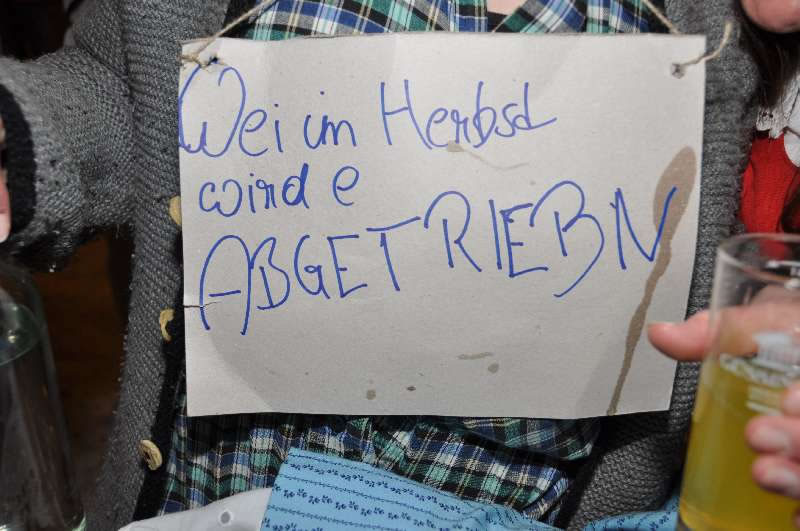 Wei im Herbsd
wird e
ABGETRIEBN